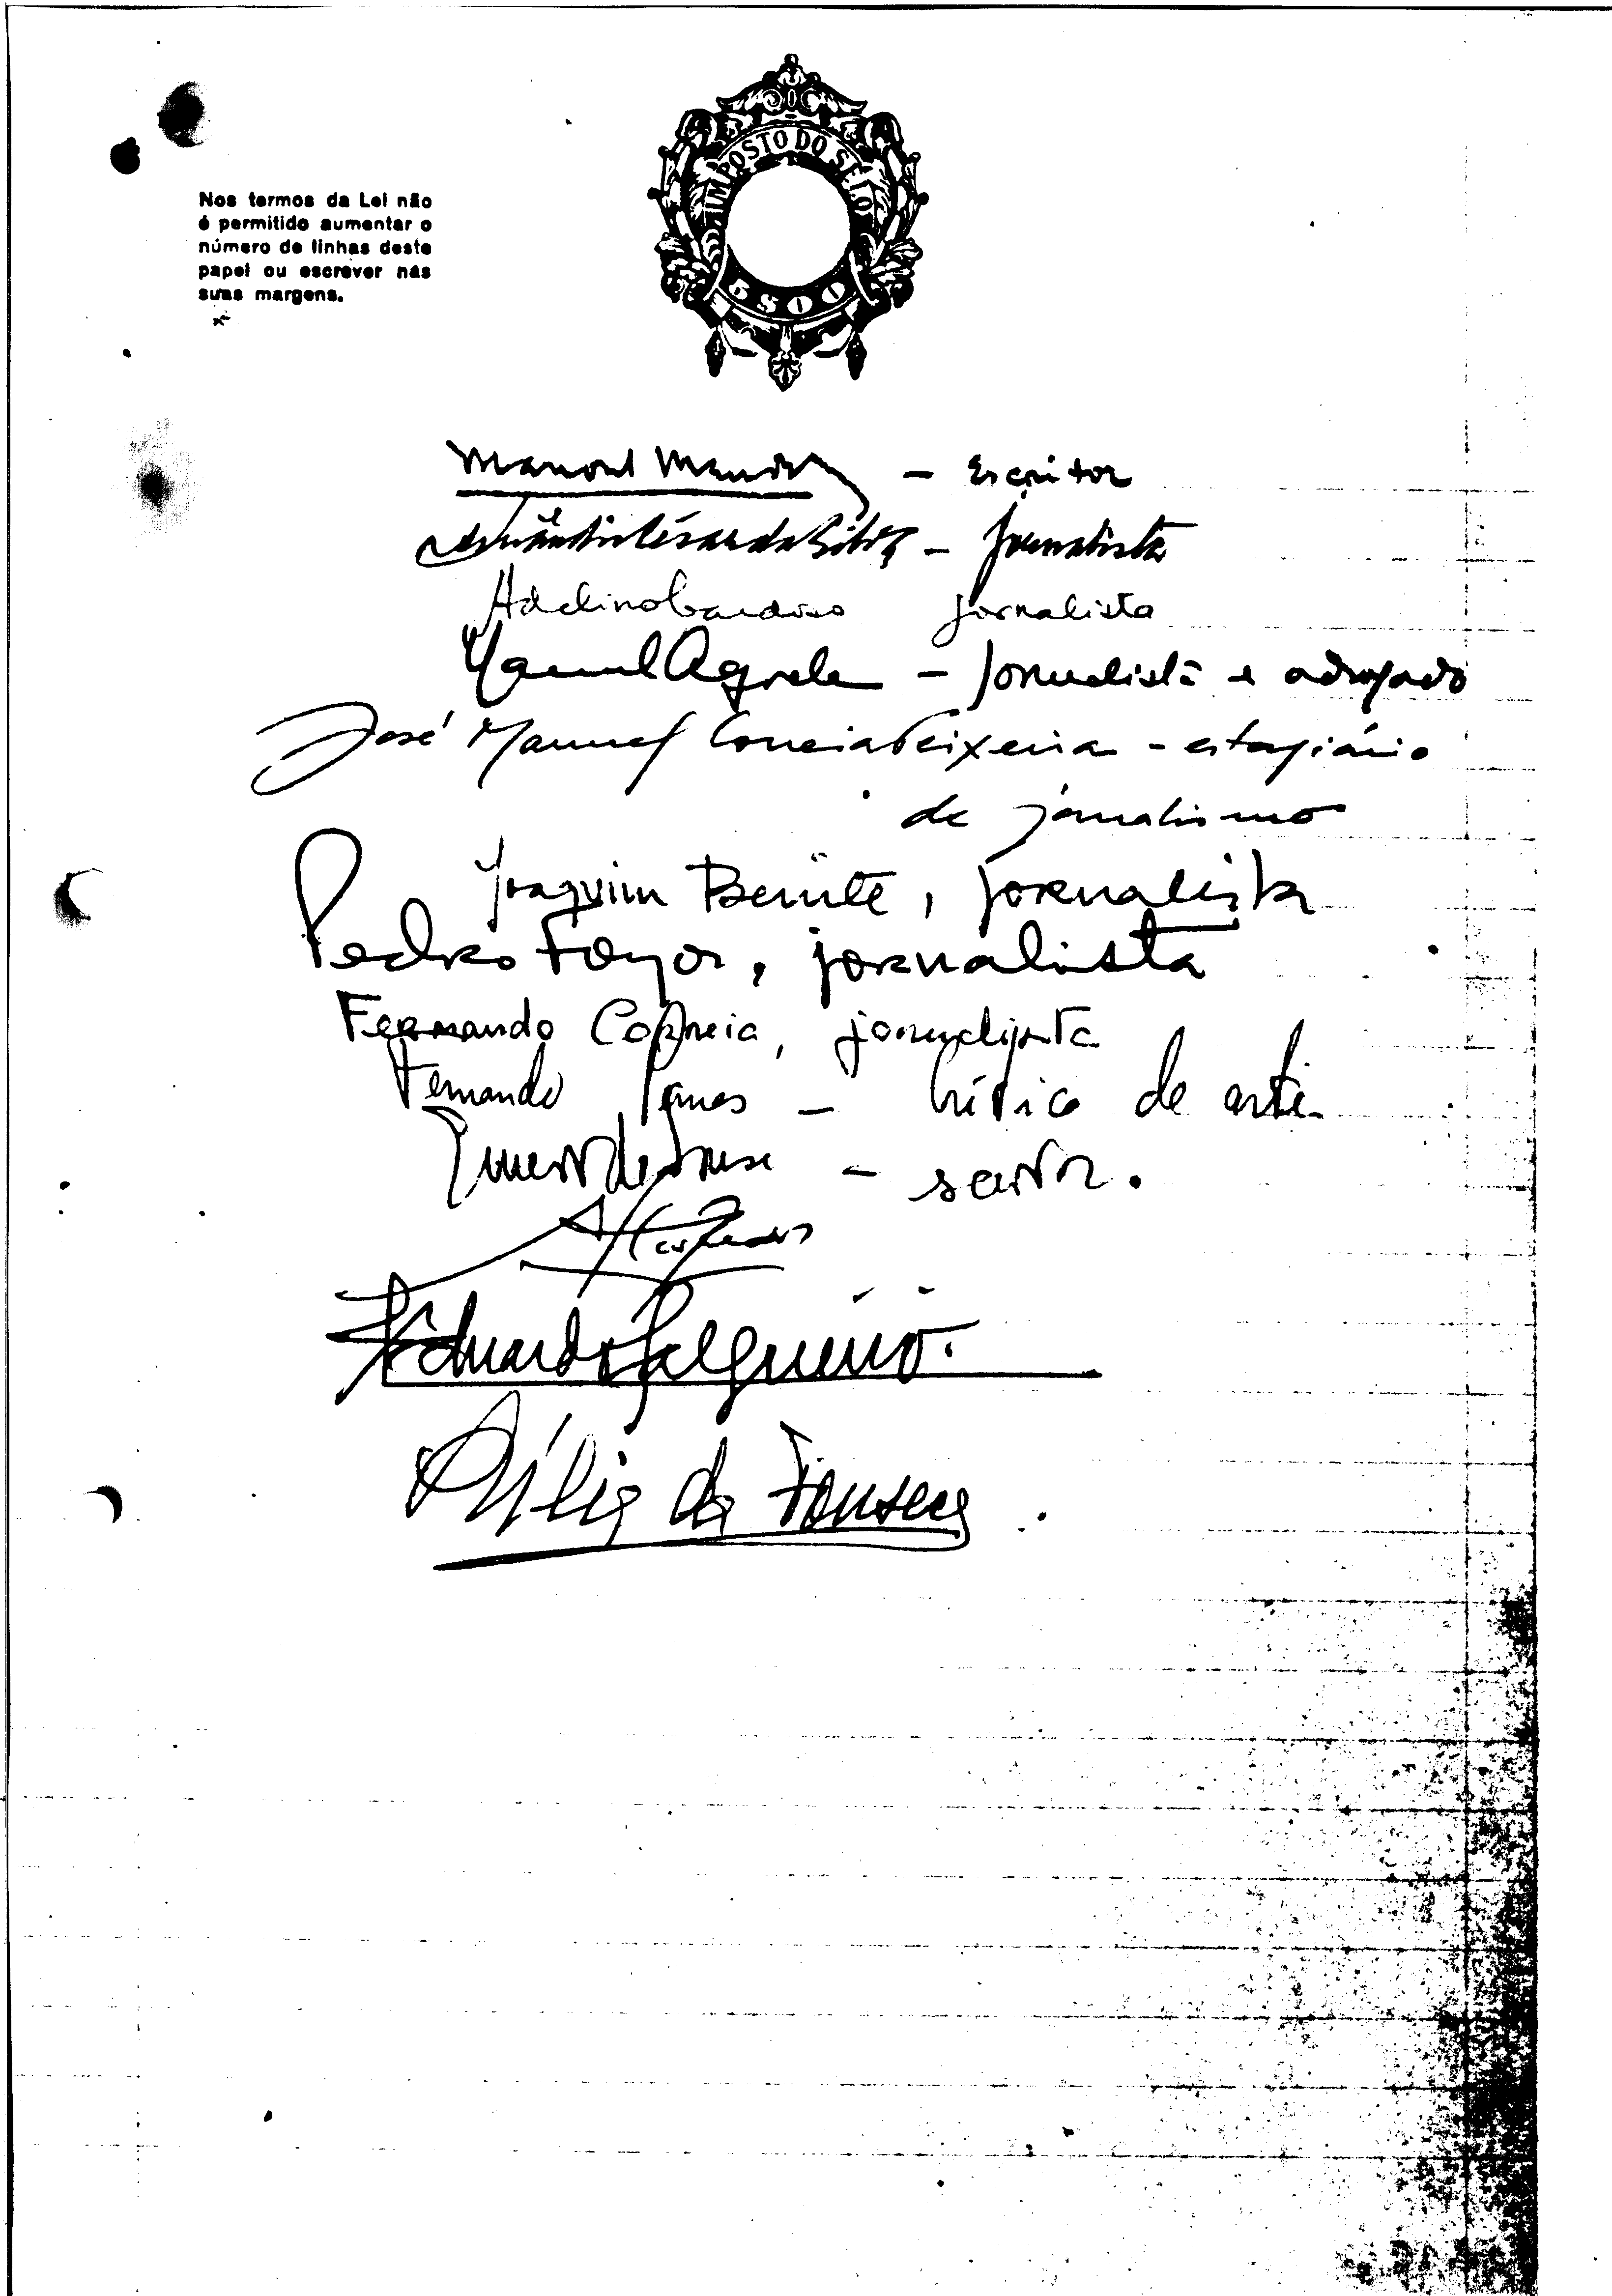 IMPOSTO DO SELO
6$00
Nos termos da Lei não
é permitido aumentar o
número de linhas deste
papel ou escrever nas
suas margens.
Manoel Mendes - Escritor
- Jornalista
Adelino Cardoso jornalista
Manuel Agrela - Jornalista e advogado
José Manuel Correia Teixeira - estagiário
de jornalismo
Joaquim Benite, jornalista
Pedro Foyos, jornalista
Fernando Correia, jornalista
Fernando Pernes - Crítico de arte
- escritor.
Eduardo Salgueiro.
Júlia da Fonseca